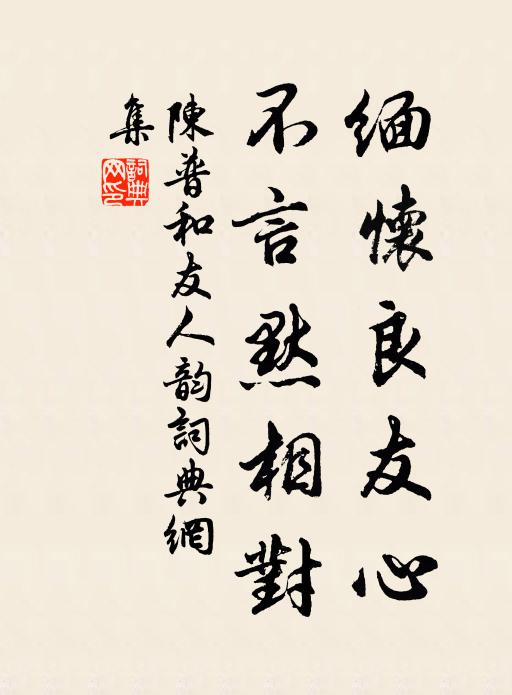 缅懷良友心
不言默相對
陳普和友人韵詞典網
集
詞典
网印